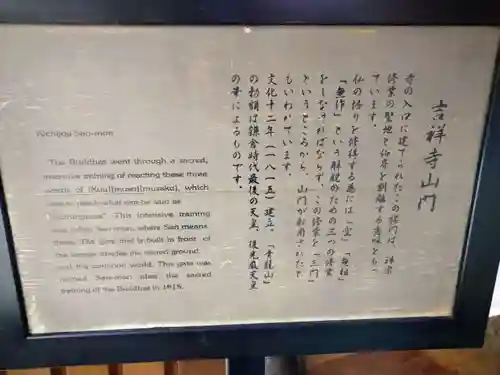 吉祥寺山門
寺の入口に建てられたこの楼門は、禅宗
修業の聖地と俗界を割離する意味をもっ
ています。
仏の悟りを修得する為には「空」「無相」
「無作」という解脱のための三つの修業
をしなければならず、この修業を「三門」
というところから、山門が転用されたと
もいわれています。
文化十二年（一八一五）建立。「青龍山」
の勅額は鎌倉時代最後の天皇、後光厳天皇
の筆によるものです。
Kichijoji San-mon
The Buddhas went through a sacred,
intensive training of reaching these three
words of (Kuu)(muso)(musaku), which
This intensive training
was San-mon, where San means
three. The gate
is built in front of
the ground,
and the common world. This gate was
San-mon after the sacred
training of the Buddhas in 1815.